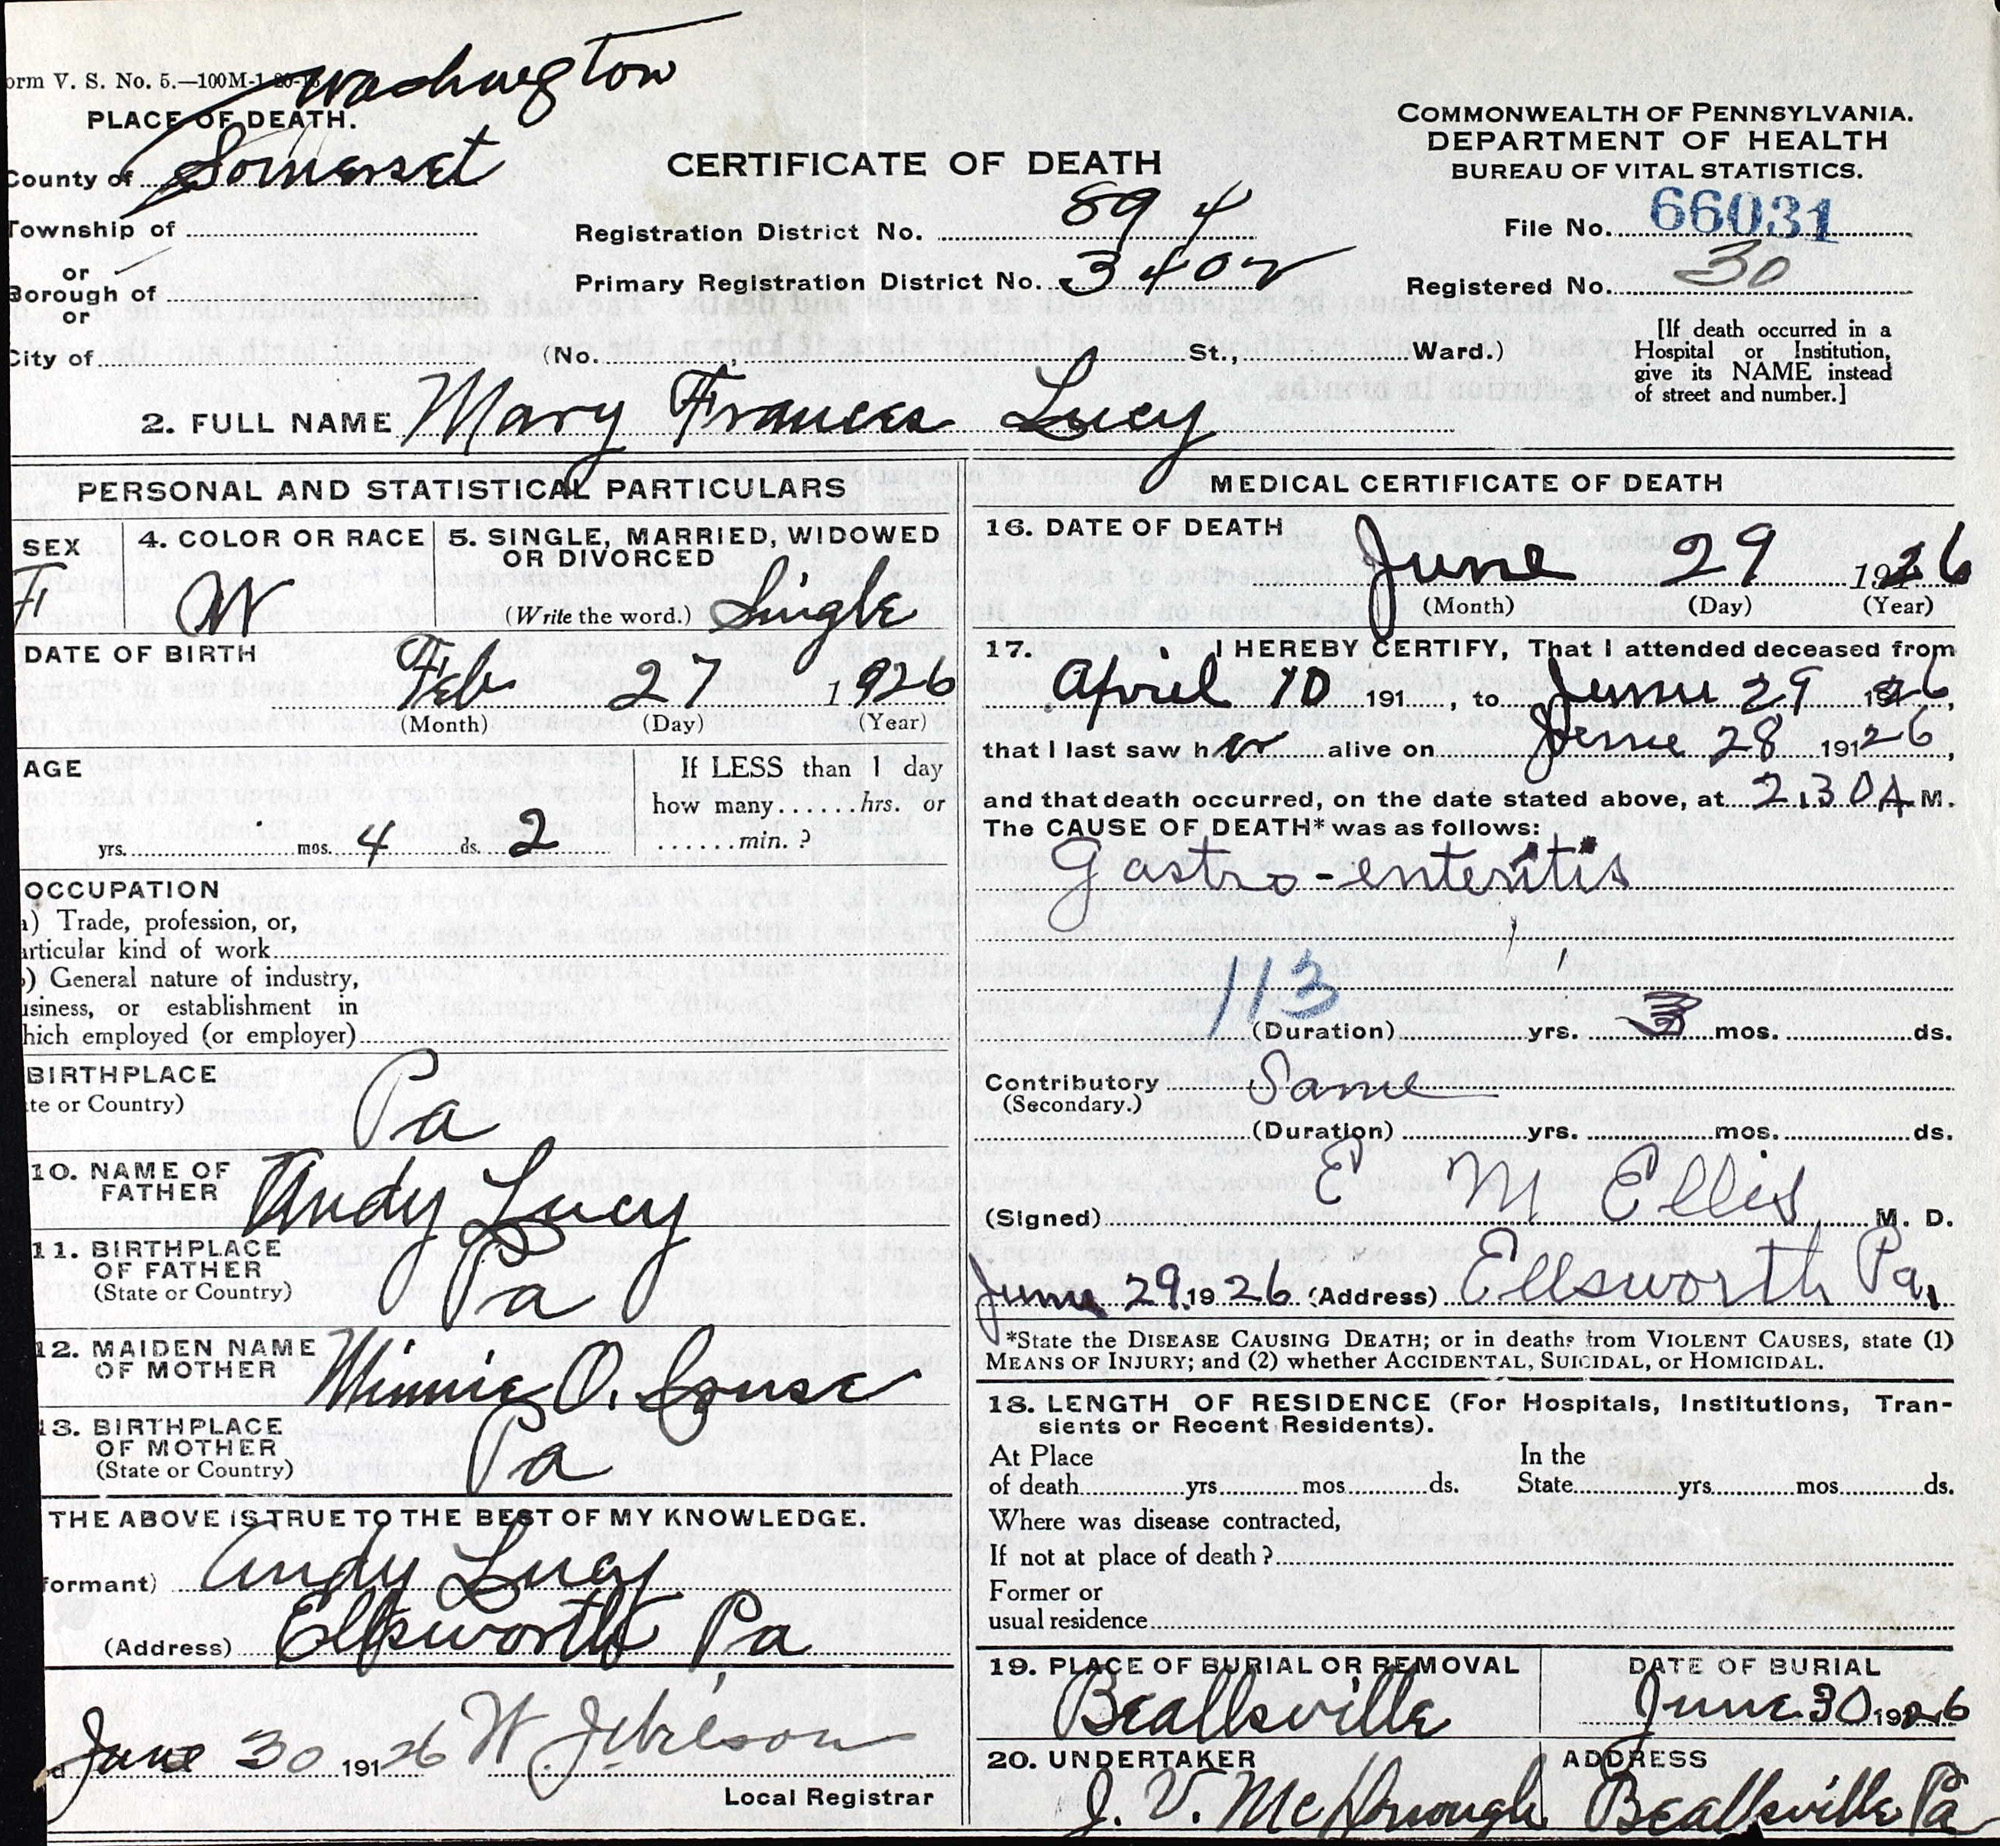 orm V. S. No. 5.—100M-1
Washington
PLACE OF DEATH.
County of Somerset
Township of
or
Borough of
or
City of
CERTIFICATE OF DEATH
Registration District No. 894
Primary Registration District No. 3402
(No. , St., Ward.)
COMMONWEALTH OF PENNSYLVANIA.
DEPARTMENT OF HEALTH
BUREAU OF VITAL STATISTICS.
File No. 66031
Registered No. 30
[If death occurred in a
Hospital or Institution,
give its NAME instead
of street and number.]
2. FULL NAME Mary Frances Lucy
PERSONAL AND STATISTICAL PARTICULARS
SEX
F
4. COLOR OR RACE
W
5. SINGLE, MARRIED, WIDOWED
OR DIVORCED
(Write the word.) Single
DATE OF BIRTH
Feb 27 1926
(Month) (Day) (Year)
AGE
yrs. mos. 4 ds. 2
If LESS than 1 day
how many......hrs. or
......min. ?
OCCUPATION
a) Trade, profession, or,
articular kind of work
) General nature of industry,
usiness, or establishment in
hich employed (or employer)
BIRTHPLACE
te or Country)
Pa
10. NAME OF
FATHER
Andy Lucy
11. BIRTHPLACE
OF FATHER
(State or Country)
Pa
12. MAIDEN NAME
OF MOTHER
Minnie O.
13. BIRTHPLACE
OF MOTHER
(State or Country)
Pa
THE ABOVE IS TRUE TO THE BEST OF MY KNOWLEDGE.
formant) Andy Lucy
(Address) Ellsworth Pa
d June 30 19126 W. J.
Local Registrar
MEDICAL CERTIFICATE OF DEATH
16. DATE OF DEATH
June 29 1926
(Month) (Day) (Year)
17. I HEREBY CERTIFY, That I attended deceased from
April 10 191 , to June 29 1926,
that I last saw her alive on June 28 19126,
and that death occurred, on the date stated above, at 2.30 A. M.
The CAUSE OF DEATH* was as follows:
Gastro-enteritis
113
(Duration) yrs. 3 mos. ds.
Contributory Same
(Secondary.)
(Duration) yrs. mos. ds.
(Signed) E M Ellis M. D.
June 29. 1926 (Address) Ellsworth Pa.
*State the DISEASE CAUSING DEATH; or in deaths from VIOLENT CAUSES, state (1)
MEANS OF INJURY; and (2) whether ACCIDENTAL, SUICIDAL, or HOMICIDAL.
18. LENGTH OF RESIDENCE (For Hospitals, Institutions, Tran-
sients or Recent Residents).
At Place In the
of death yrs. mos ds. State yrs. mos ds.
Where was disease contracted,
If not at place of death?
Former or
usual residence
19. PLACE OF BURIAL OR REMOVAL
Beallsville
DATE OF BURIAL
June 30 1926
20. UNDERTAKER
J. V. McDonough
ADDRESS
Beallsville Pa